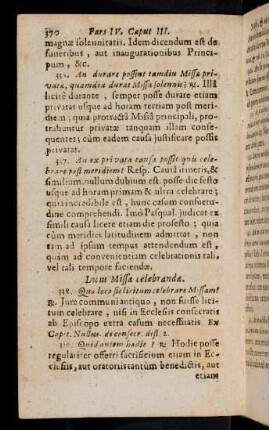 370 Pars IV. Caput III.
magnæ solennitatis. Idem dicendum est de
funeribus, aut inaugurationibus Princi-
pum, &c.
An durare possint tamdiu Missa pri-
vata, quamdiu durat Missa solennis? ℟. Illâ
licitè durante, semper posse durare etiam
privatas usque ad horam tertiam post meri-
diem; quia protractâ Missâ principali, pro-
trahuntur privatæ tanquam illam conse-
quentes; cùm eadem causa justificare possit
privatas.
317. An ex privata causa possit quis cele-
brare post meridiem? Resp. Causâ itineris, &
similium, nullum dubium est posse die festo
usque ad horam primam & ultra celebrare;
quia incredibile est, hunc casum consuetu-
dine comprehendi. Imò Pasqual. judicat ex
simili causa licere etiam die profesto; quia
cùm meridies latitudinem admittat, non
tam ad ipsum tempus attendendum est,
quàm ad convenientiam celebrationis tali,
vel tali tempore faciendæ.
Locus Missæ celebrandæ.
318. Quo loco sit licitum celebrare Missam?
℟. Jure communi antiquo, non fuisse licitum
celebrare, nisi in Ecclesiis consecratis
ab Episcopo extra casum necessitatis. Ex
Cap. Nullus. de consecr. dist. 1.
Quid autem hodie? ℟. Hodie posse
regulariter offerri sacrificium etiam in Ec-
clesiis, aut oratoriis tantùm benedictis, aut
etiam